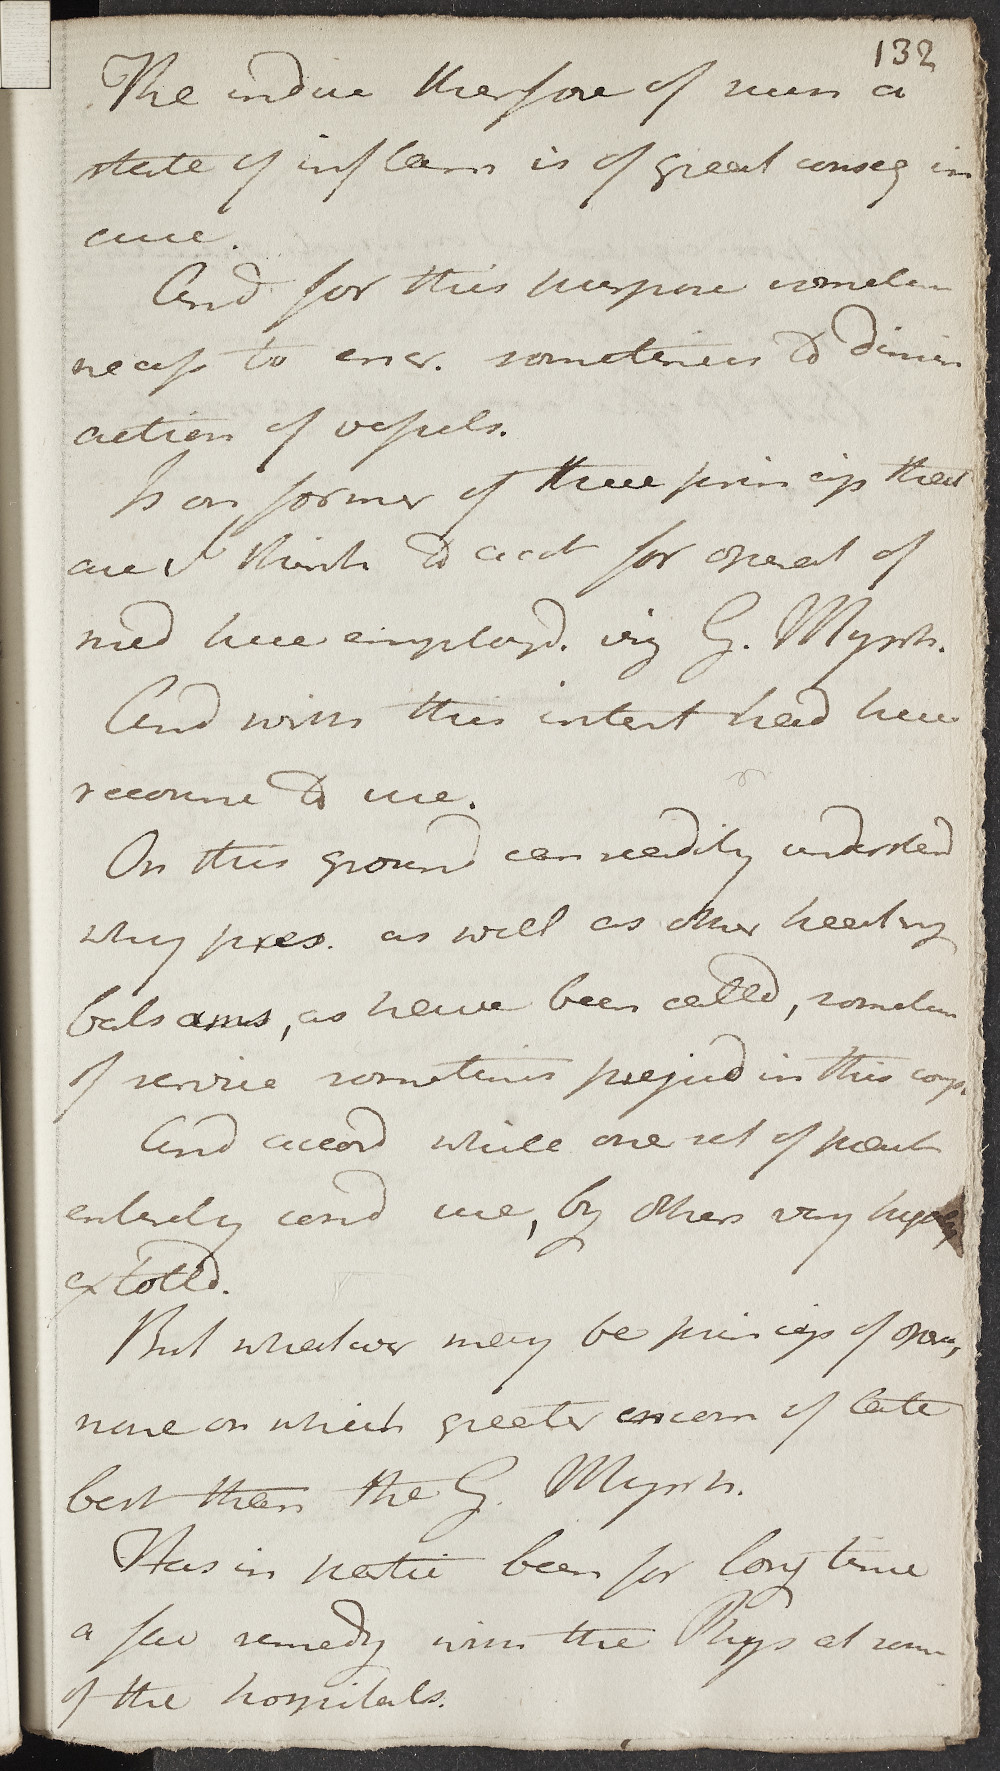 132
The induc therfore of such a
state of inflam is of great conseq in
cure.
And for this purpose sometim
necess to incr. sometimes to dimin
action of vessels.
Is on former of these princip that
are I think to acct for operat of
med here employd. viz G. Myrrh.
And with this intent had here
recourse to use.
On this ground can readily understand
why pres. as well as other healing
balsams, as have been called, sometim
of service sometimes prejud in this comp.
And accord while one set of pract
entirely cond use, by others very highly
extolld.
But whatever may be princip of oper,
none on which greater encom of late
best than the G. Myrrh.
Has in partic been for long time
a fav remedy with the Phys at some
of the hospitals.